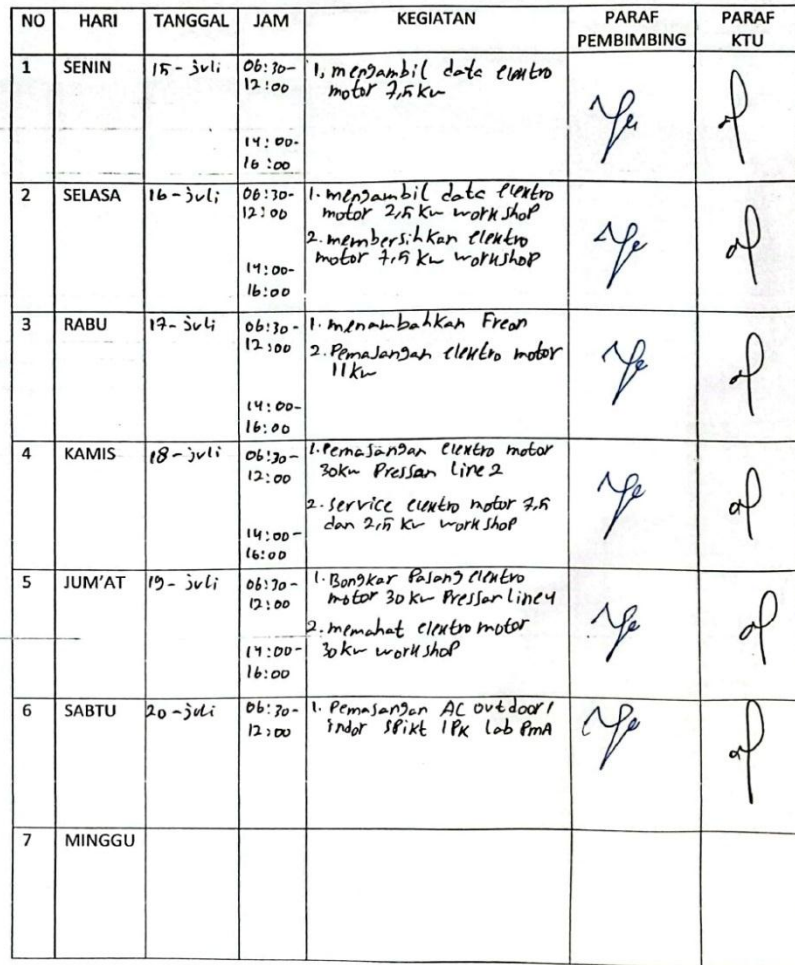 NO HARI TANGGAL JAM KEGIATAN PARAF PEMBIMBING PARAF KTU
1 SENIN 15 - juli 06:30- 12:00
14:00- 16:00
1. mengambil data elektro
motor 7,5 Kw
2 SELASA 16 - juli 06:30- 12:00
14:00- 16:00
1. mengambil data elektro
motor 2,5 Kw workshop
2. membersihkan elektro
motor 7,5 Kw workshop
3 RABU 17 - juli 06:30- 12:00
14:00- 16:00
1. menambahkan Freon
2. Pemasangan elektro motor
11 Kw
4 KAMIS 18 - juli 06:30- 12:00
14:00- 16:00
1. Pemasangan elektro motor
30 Kw Pressan line 2
2. service elektro motor 7,5
dan 2,5 Kw workshop
5 JUM'AT 19 - juli 06:30- 12:00
14:00- 16:00
1. Bongkar Pasang elektro
motor 30 Kw Pressan line 4
2. memahat elektro motor
30 Kw workshop
6 SABTU 20 - juli 06:30- 12:00
1. Pemasangan AC outdoor/
indor spikt 1PK lab PmA
7 MINGGU